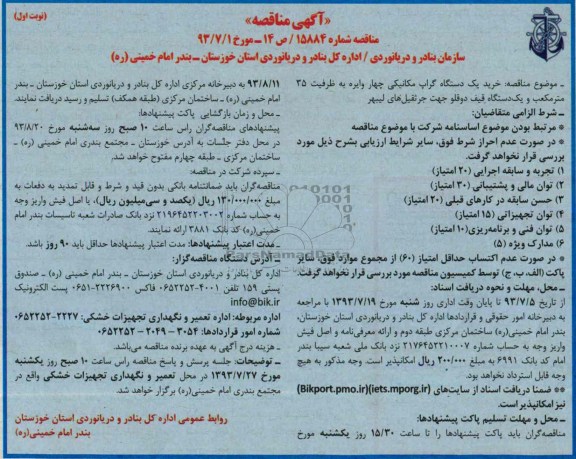 (نوبت اول)
«آگهی مناقصه»
مناقصه شماره ۱۵۸۸۴ / ص ۱۴ ــ مورخ ۹۳/۷/۱
سازمان بنادر و دریانوردی / اداره کل بنادر و دریانوردی استان خوزستان ــ بندر امام خمینی (ره)
ــ موضوع مناقصه: خرید یک دستگاه گراپ مکانیکی چهار وایره به ظرفیت ۳۵
مترمکعب و یکدستگاه قیف دوقلو جهت جرثقیل‌های لیبهر
ــ شرط الزامی متقاضیان:
* مرتبط بودن موضوع اساسنامه شرکت با موضوع مناقصه
* در صورت عدم احراز شرط فوق، سایر شرایط ارزیابی بشرح ذیل مورد
بررسی قرار نخواهد گرفت.
۱) تجربه و سابقه اجرایی (۲۰ امتیاز)
۲) توان مالی و پشتیبانی (۳۰ امتیاز)
۳) حسن سابقه در کارهای قبلی (۲۰ امتیاز)
۴) توان تجهیزاتی (۱۵ امتیاز)
۵) توان فنی و برنامه‌ریزی (۱۰ امتیاز)
۶) مدارک ویژه (۵)
* در صورت عدم اکتساب حداقل امتیاز (۶۰) از مجموع موارد فوق، سایر
پاکت (الف، ب، ج) توسط کمیسیون مناقصه مورد بررسی قرار نخواهد گرفت.
ــ محل، مهلت و نحوه دریافت اسناد:
از تاریخ ۹۳/۷/۵ تا پایان وقت اداری روز شنبه مورخ ۱۳۹۳/۷/۱۹ با مراجعه
به دبیرخانه امور حقوقی و قراردادها اداره کل بنادر و دریانوردی استان خوزستان،
بندر امام خمینی(ره) ساختمان مرکزی طبقه دوم و ارائه معرفی‌نامه و اصل فیش
واریز وجه به حساب شماره ۲۱۷۶۴۵۲۲۱۰۰۰۷ نزد بانک ملی شعبه سیبا بندر
امام کد بانک ۶۹۹۱ به مبلغ ۲۰۰/۰۰۰ ریال امکانپذیر است. وجه مذکور به هیچ
وجه قابل استرداد نخواهد بود.
** ضمنا دریافت اسناد از سایت‌های (iets.mporg.ir)(Bikport.pmo.ir)
نیز امکانپذیر است.
ــ محل و مهلت تسلیم پاکت پیشنهادها:
مناقصه‌گران باید پاکت پیشنهادها را تا ساعت ۱۵/۳۰ روز یکشنبه مورخ
۹۳/۸/۱۱ به دبیرخانه مرکزی اداره کل بنادر و دریانوردی استان خوزستان ــ بندر
امام خمینی (ره) ــ ساختمان مرکزی (طبقه همکف) تسلیم و رسید دریافت نمایند.
ــ محل و زمان بازگشایی پاکت پیشنهادها:
پیشنهادهای مناقصه‌گران راس ساعت ۱۰ صبح روز سه‌شنبه مورخ ۹۳/۸/۲۰
در محل دفتر جلسات به آدرس خوزستان ــ مجتمع بندری امام خمینی (ره) ــ
ساختمان مرکزی ــ طبقه چهارم مفتوح خواهد شد.
ــ سپرده شرکت در مناقصه:
مناقصه‌گران باید ضمانتنامه بانکی بدون قید و شرط و قابل تمدید به دفعات به
مبلغ ۱۳۰/۰۰۰/۰۰۰ ریال (یکصد و سی‌میلیون ریال)، یا اصل فیش واریز وجه
به حساب شماره ۲۱۹۶۴۵۲۲۰۳۰۰۲ نزد بانک صادرات شعبه تاسیسات بندر امام
خمینی(ره) کد بانک ۳۸۸۱ ارائه نمایند.
ــ مدت اعتبار پیشنهادها: مدت اعتبار پیشنهادها حداقل باید ۹۰ روز باشد.
ــ آدرس دستگاه مناقصه‌گزار:
اداره کل بنادر و دریانوردی استان خوزستان ــ بندر امام خمینی (ره) ــ صندوق
پستی ۱۵۹ تلفن ۴۰۰۱-۰۶۵۲۲۵۲ فاکس ۲۲۲۶۹۰۰-۰۶۵۱ پست الکترونیک
info@bik.ir
اداره مربوطه: اداره تعمیر و نگهداری تجهیزات خشکی: ۲۲۲۷-۰۶۵۲۲۵۲
شماره امور قراردادها: ۳۰۵۴ ــ ۲۰۴۹ ــ ۰۶۵۲۲۵۲
ــ هزینه درج آگهی به عهده برنده مناقصه می‌باشد.
ــ توضیحات: جلسه پرسش و پاسخ مناقصه راس ساعت ۱۰ صبح روز یکشنبه
مورخ ۱۳۹۳/۷/۲۷ در محل تعمیر و نگهداری تجهیزات خشکی واقع در
مجتمع بندری امام خمینی (ره) برگزار خواهد شد.
روابط عمومی اداره کل بنادر و دریانوردی استان خوزستان
بندر امام خمینی(ره)